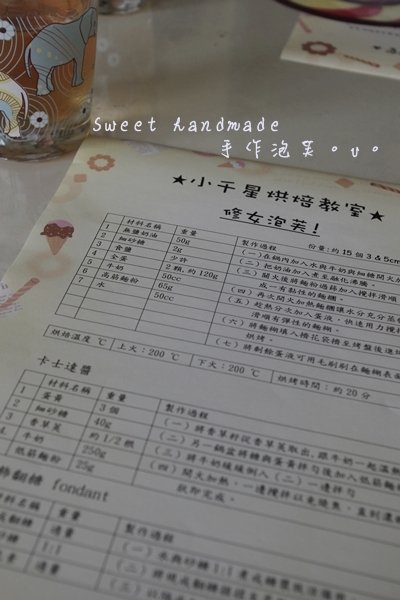 Sweet handmade
手作泡芙。υ。
★小千星烘焙教室★
修女泡芙!
材料名稱 重量 製作過程 份量:約15個3&5cm
1 無鹽奶油 50g (一)在鍋內加入水與牛奶與細糖開火加
2 細砂糖 2g (二)把奶油加入煮至融化沸騰。
3 食鹽 少許 (三)關火後將麵粉過篩加入攪拌滑順
4 全蛋 2顆,約120g 成一有黏性的麵糰。
5 牛奶 50cc (四)再次開火加熱麵糰讓水分充分蒸
6 高筋麵粉 65g (五)趁熱分次加入蛋液,快速用力攪拌
7 水 50cc 滑順有彈性的麵糊。
(六)將麵糊填入擠花袋擠至烤盤後進
烘烤。
(七)將剩餘蛋液可用毛刷刷在麵糊表
烘焙溫度℃ 上火:200℃ 下火:200℃ 烘烤時間:約20分
卡士達醬
材料名稱 重量 製作過程
1 蛋黃 3個 (一)將香草籽從香草莢取出,跟牛奶一起溫熱
2 細砂糖 40g (二)另一鍋盆將糖與蛋黃拌勻後加入低筋麵粉
3 香草莢 約1/2根 (三)將牛奶緩緩倒入(二)一邊拌勻
4 牛奶 250g (四)開火加熱,一邊攪拌以免燒焦,直到濃
5 低筋麵粉 25g 狀即完成。
翻糖 fondant
材料名稱 重量 製作過程
適量 (一)水與砂糖1:1煮成糖漿
1:1
適量